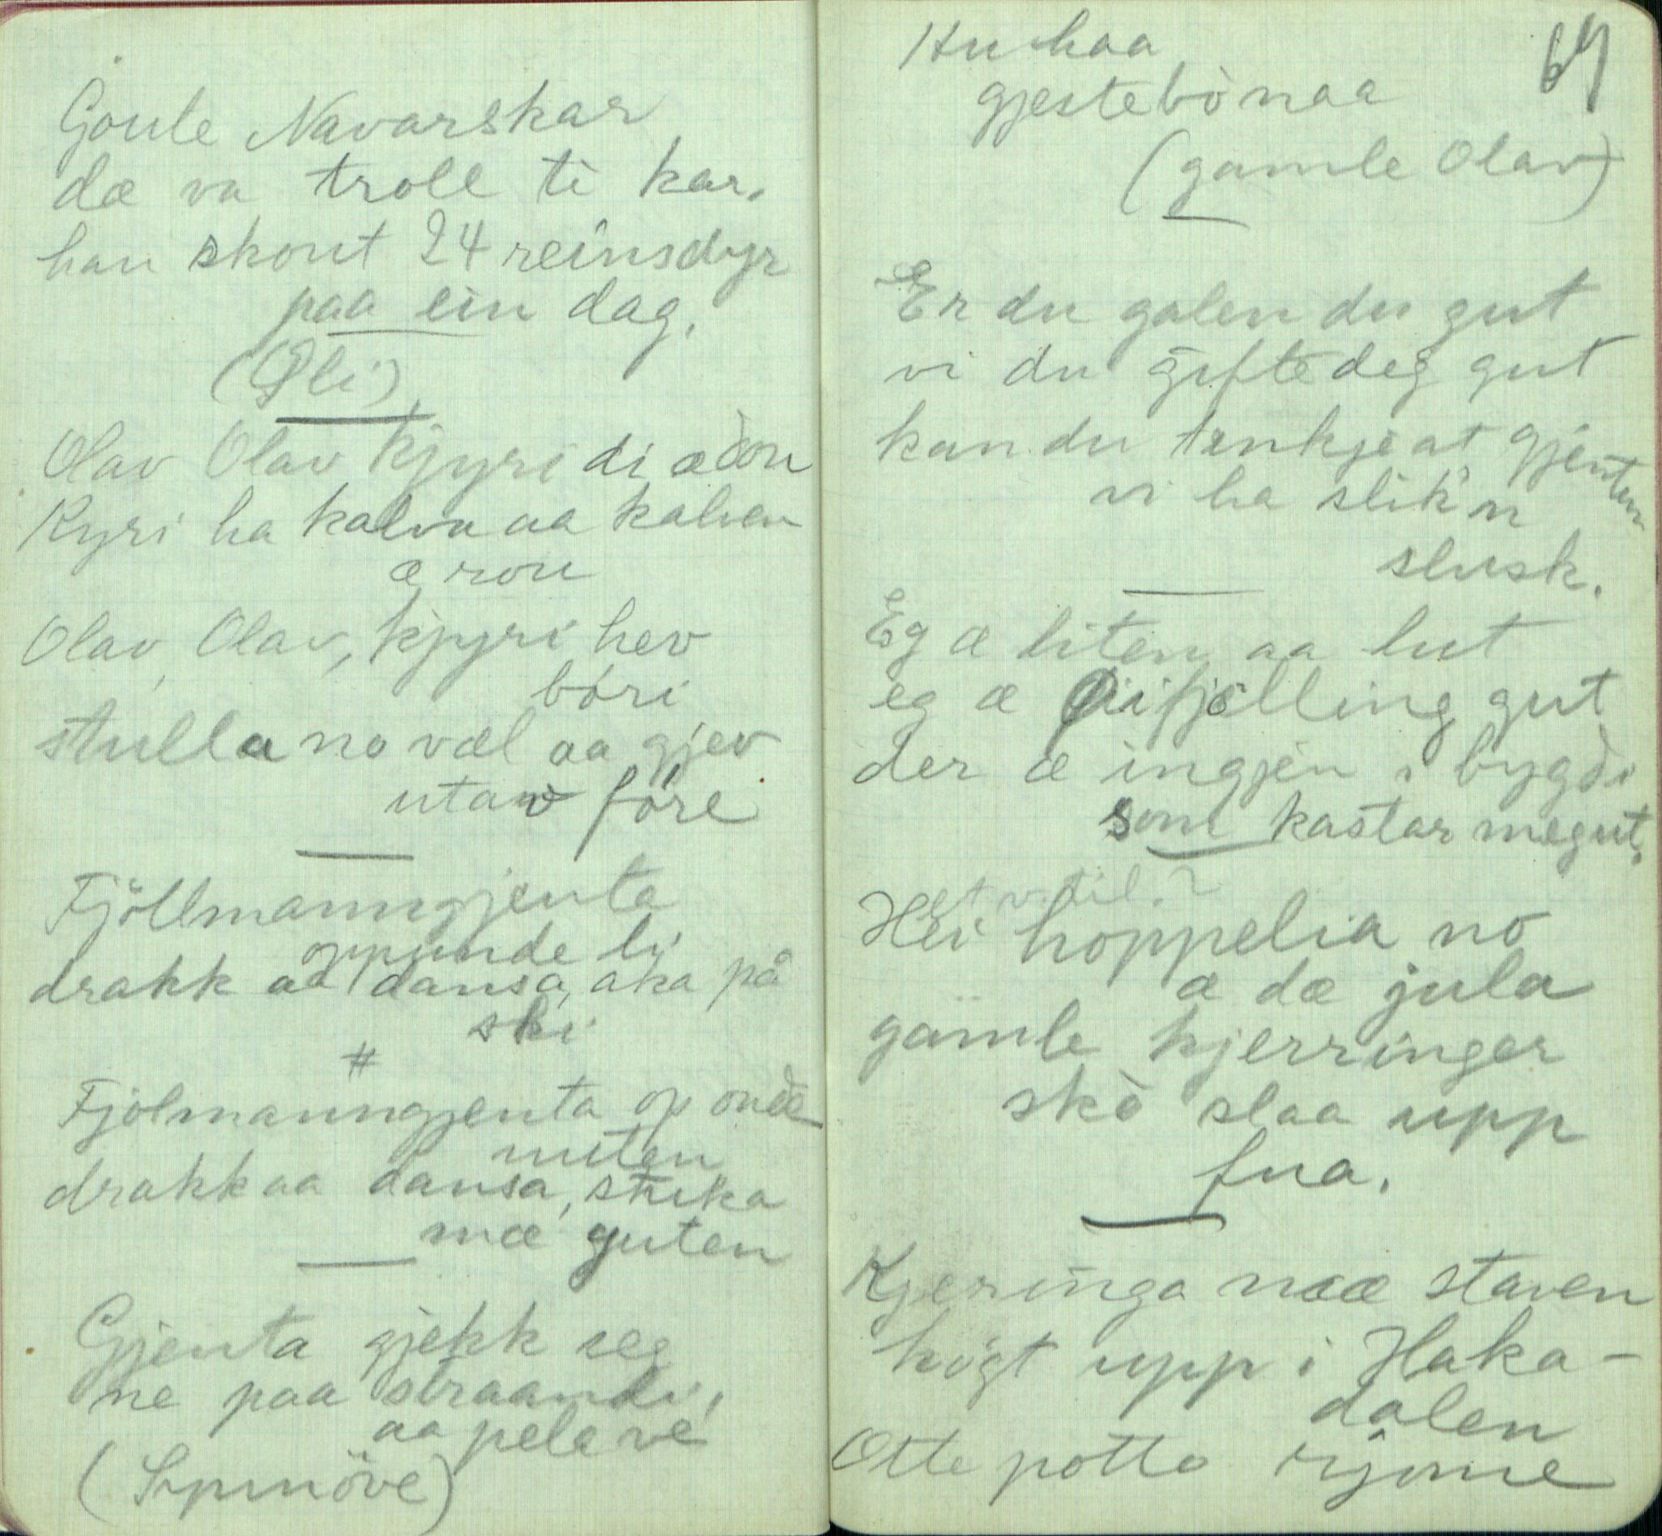 Goule Navarskar
dæ va troll ti kar.
han skout 24 reinsdyr
paa ein dag.
(Øli)
Olav Olav kjyri di æ dou
Kyri ha kalva aa kalven
æ rou
Olav, Olav, kjyri hev
bóri
stulla no væl aa gjev
utav fóre
Fjöllmanngjenta
oppunde li
drakk aa dansa, aka på
ski
#
Fjölmanngjenta op onde
nuten
drakk aa dansa, struka
mæ guten
Gjenta gjekk seg
ne paa straandi,
aa pela ve
(Synnöve)
64
Hu haa
gjestebònaa
(gamle Olav)
Er du galen du gut
vi du gifte deg gut
kan du tenkje at gjenten
vi ha slik'n
slusk.
Eg æ liten aa lut
eg æ fjölling gut
der æ ingjen i bygdi
som kastar meg ut.
vtil.?
Hei hoppelia no
æ dæ jula
gamle kjerringer
skò slaa upp
fua.
Kjeringa mææ staven
högt upp i Haka-
dalen
Otte potto rjome